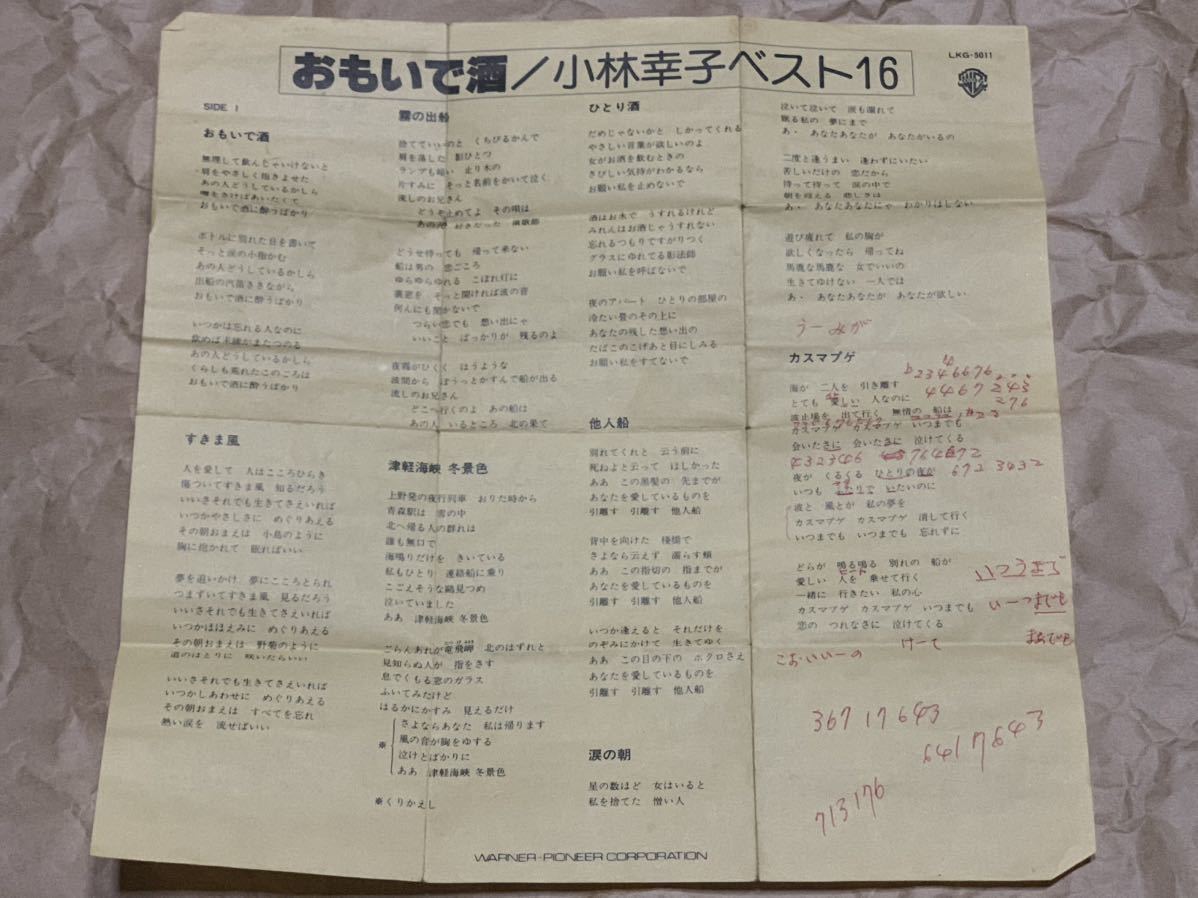 おもいで酒/小林幸子ベスト16
LKG-5011
SIDE 1
おもいで酒
無理して飲んじゃいけないと
肩をやさしく抱きよせた
あの人どうしているかしら
噂をきけばあいたくて
おもいで酒に酔うばかり
ボトルに別れた日を書いて
そっと涙の小指かむ
あの人どうしているかしら
出船の汽笛ききながら
おもいで酒に酔うばかり
いつかは忘れる人なのに
飲めば未練がまたつのる
あの人どうしているかしら
くらしも荒れたこのごろは
おもいで酒に酔うばかり
すきま風
人を愛して 人はこころひらき
傷ついてすきま風 知るだろう
いいさそれでも生きてさえいれば
いつかやさしさに めぐりあえる
その朝おまえは 小鳥のように
胸に抱かれて 眠ればいい
夢を追いかけ 夢にこころとられ
つまずいてすきま風 見るだろう
いいさそれでも生きてさえいれば
いつかほほえみに めぐりあえる
その朝おまえは 野菊のように
道のほとりに 咲いたらいい
いいさそれでも生きてさえいれば
いつかしあわせに めぐりあえる
その朝おまえは すべてを忘れ
熱い涙を 流せばいい
霧の出船
捨てていいのと くちびるかんで
肩を落した 影ひとつ
ランプも暗い 止り木の
片すみに そっと名前をかいて泣く
流しのお兄さん
どうぞ止めてよ その唄は
あの人 好きだった 演歌節
どうせ待っても 帰って来ない
船は男の 恋ごころ
ゆらゆらゆれる こぼれ灯に
裏窓を そっと開ければ波の音
何んにも聞かないで
つらい恋でも 想い出にゃ
いいこと ばっかりが 残るのよ
夜霧がひくく はうような
波間から ぼうっとかすんで船が出る
流しのお兄さん
どこへ行くのよ あの船は
あの人 いるところ 北の果て
津軽海峡 冬景色
上野発の夜行列車 おりた時から
青森駅は 雪の中
北へ帰る人の群れは
誰も無口で
海鳴りだけを きいている
私もひとり 連絡船に乗り
こごえそうな鷗見つめ
泣いていました
ああ 津軽海峡 冬景色
ごらんあれが竜飛岬 北のはずれと
見知らぬ人が 指をさす
息でくもる窓のガラス
ふいてみたけど
はるかにかすみ 見えるだけ
さよならあなた 私は帰ります
風の音が胸をゆする
※
泣けとばかりに
ああ 津軽海峡 冬景色
※くりかえし
ひとり酒
だめじゃないかと しかってくれる
やさしい言葉が欲しいのよ
女がお酒を飲むときの
さびしい気持がわかるなら
お願い私を止めないで
酒はお水で うすれるけれど
みれんはお酒じゃうすれない
忘れるつもりですがりつく
グラスにゆれてる影法師
お願い私を呼ばないで
夜のアパート ひとりの部屋の
冷たい畳のその上に
あなたの残した想い出の
たばこのこげあと目にしみる
お願い私をすてないで
他人船
別れてくれと 云う前に
死ねよと云って ほしかった
ああ この黒髪の 先までが
あなたを愛しているものを
引離す 引離す 他人船
背中を向けた 桟橋で
さよなら云えず 濡らす頬
ああ この指切の 指までが
あなたを愛しているものを
引離す 引離す 他人船
いつか逢えると それだけを
のぞみにかけて 生きてゆく
ああ この目の下の ホクロさえ
あなたを愛しているものを
引離す 引離す 他人船
涙の朝
星の数ほど 女はいると
私を捨てた 憎い人
泣いて泣いて 涙も濡れて
眠る私の 夢にまで
あ・ あなたあなたが あなたがいるの
二度と逢うまい 逢わずにいたい
苦しいだけの 恋だから
待って待って 涙の中で
朝を迎える 悲しさは
あ・ あなたあなたにゃ わかりはしない
遊び疲れて 私の胸が
欲しくなったら 帰ってね
馬鹿な馬鹿な 女でいいの
生きてゆけない 一人では
あ・ あなたあなたが あなたが欲しい
うーみが
カスマプゲ
海が 二人を 引き離す
とても 愛しい 人なのに
波止場を 出て行く 無情の 船は
カスマプゲ カスマプゲ いつまでも
会いたさに 会いたさに 泣けてくる
夜が くるくる ひとりの夜が
いつも 二人で いたいのに
波と 風とが 私の夢を
カスマプゲ カスマプゲ 消して行く
いつまでも いつまでも 忘れずに
どらが 鳴る鳴る 別れの 船が
愛しい 人を 乗せて行く
一緒に 行きたい 私の心
カスマプゲ カスマプゲ いつまでも
恋の つれなさに 泣けてくる
いーつまでも
までも
こおいいーの けーて
36717643
6417643
713176
WARNER-PIONEER CORPORATION